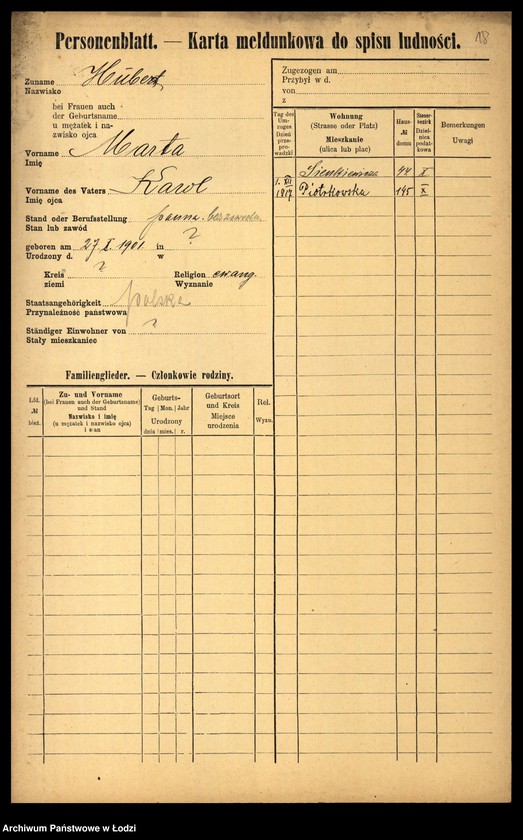 18
Personenblatt. — Karta meldunkowa do spisu ludności.
Zuname Hübert
Nazwisko
bei Frauen auch
der Geburtsname
u mężatek i na-
zwisko ojca
Vorname Marta
Imię
Vorname des Vaters Karol
Imię ojca
Stand oder Berufsstellung panna. bez zawodu.
Stan lub zawód
geboren am 27 X. 1901 in ?
Urodzony d. w
Kreis ? Religion ewang.
ziemi Wyznanie
Staatsangehörigkeit polska
Przynależność państwowa
Ständiger Einwohner von ?
Stały mieszkaniec
Familienglieder. — Członkowie rodziny.
Lfd. № bież.
Zu- und Vorname
(bei Frauen auch der Geburtsname)
und Stand
Nazwisko i imię
(u mężatek i nazwisko ojca)
i stan
Geburts-
Tag | Mon. | Jahr
Urodzony
dnia | mies. | r.
Geburtsort
und Kreis
Miejsce
urodzenia
Rel.
Wyzn.
Zugezogen am
Przybył w d.
von
z
Tag des
Um-
zuges
Dzień
prze-
prowadzki
Wohnung
(Strasse oder Platz)
Mieszkanie
(ulica lub plac)
Haus-
№
domu
Steuer-
bezirk
Dziel-
nica
podat-
kowa
Bemerkungen
Uwagi
Sienkiewicza 44 X
1. XII 1917 Piotrkowska 145 X
Archiwum Państwowe w Łodzi